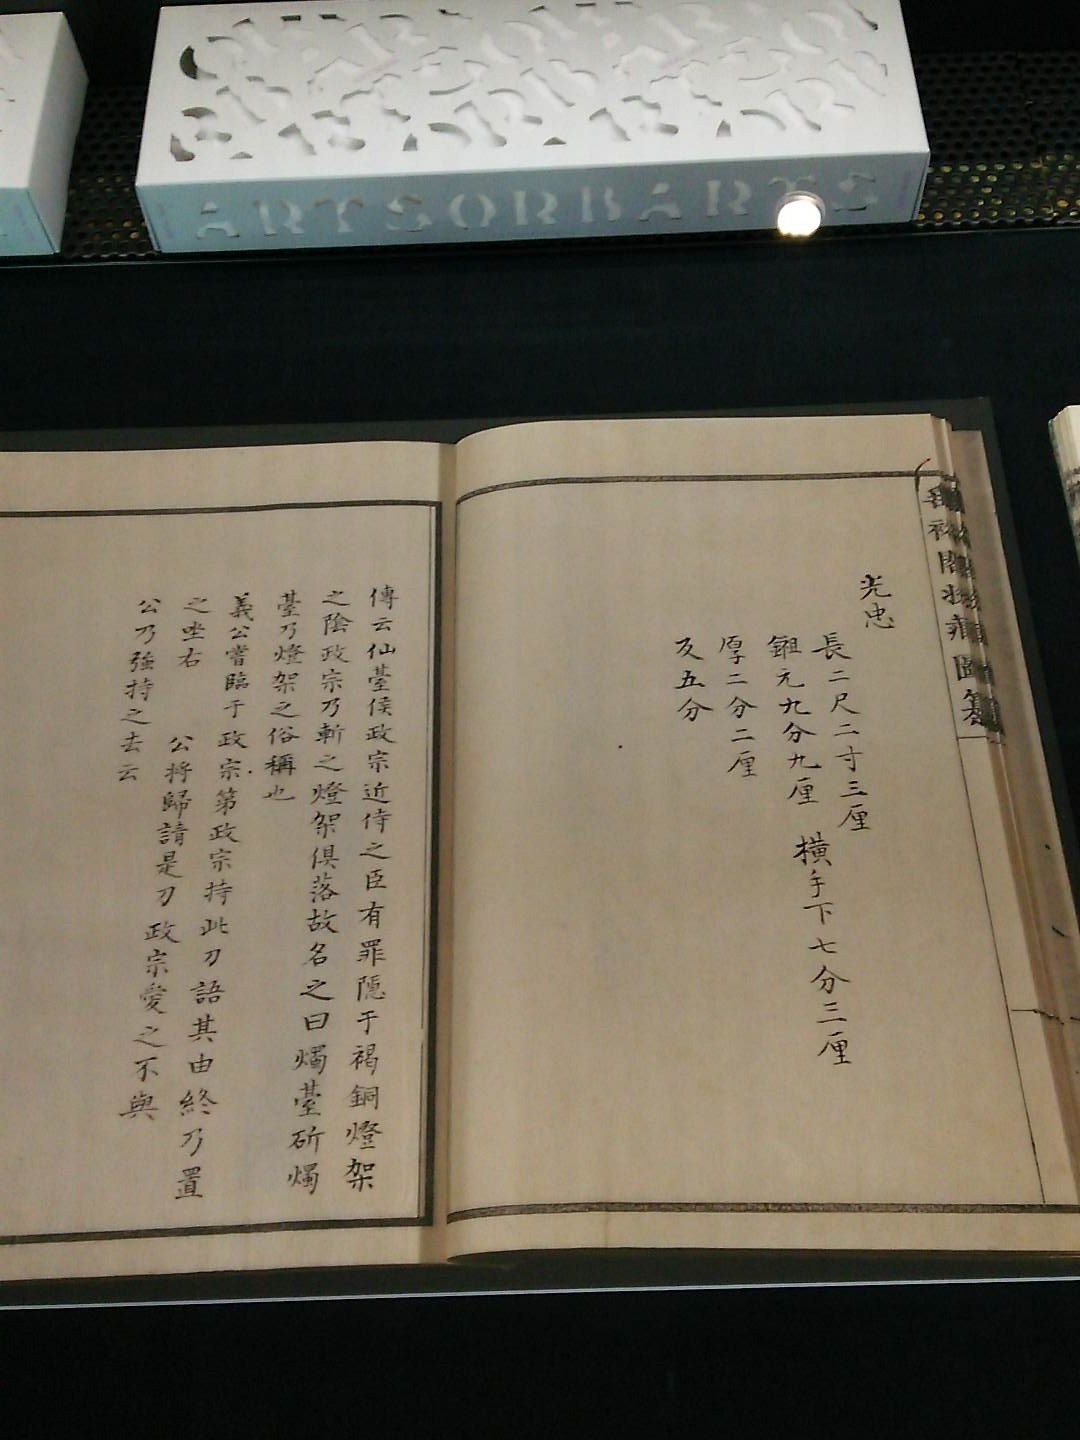 ARTSORB ARTS
光忠
長二尺二寸三厘
鎺元九分九厘 横手下七分三厘
厚二分二厘
反五分
傳云仙臺侯政宗近侍之臣有罪隠于褐銅燈架
之陰政宗乃斬之燈架倶落故名之曰燭臺斫燭
臺乃燈架之俗稱也
義公嘗臨于政宗第政宗持此刀語其由終乃置
之坐右 公将歸請是刀政宗愛之不與
公乃強持之去云